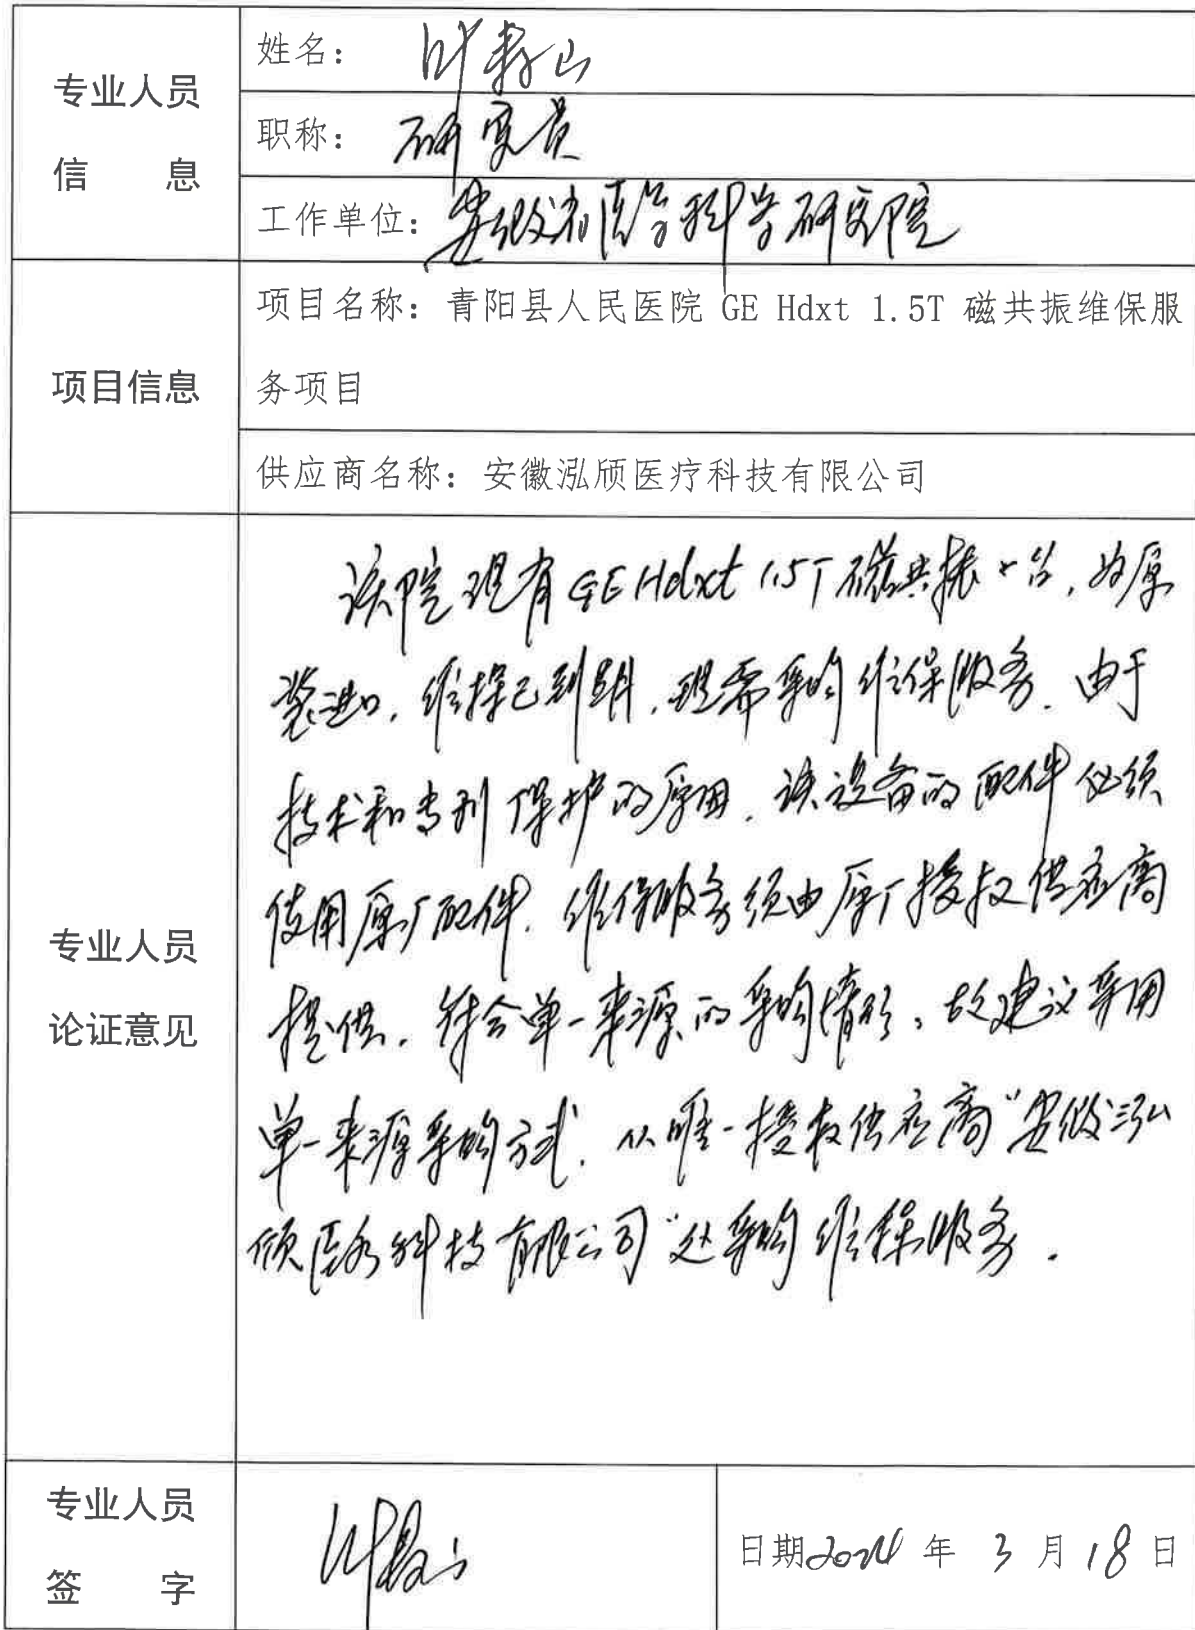 专业人员
信 息
姓名：叶寿山
职称：研究员
工作单位：安徽省医学科学研究院
项目信息
项目名称：青阳县人民医院 GE Hdxt 1.5T 磁共振维保服
务项目
供应商名称：安徽泓颀医疗科技有限公司
专业人员
论证意见
该院现有GE Hdxt 1.5T磁共振一台，为原
装进口，维保已到期，现需采购维保服务。由于
技术和专利保护的原因，该设备的配件必须
使用原厂配件，维保服务须由原厂授权供应商
提供，符合单一来源的采购情形，故建议采用
单一来源采购方式，从唯一授权供应商“安徽泓
颀医疗科技有限公司”处采购维保服务。
专业人员
签 字
日期2024年3月18日